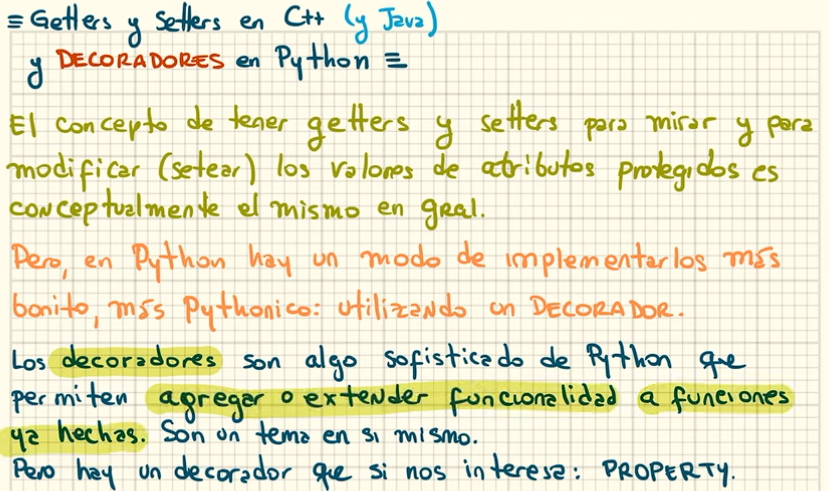 ≡ Getters y Setters en C++ (y Java)
y DECORADORES en Python ≡
El concepto de tener getters y setters para mirar y para
modificar (setear) los valores de atributos protegidos es
conceptualmente el mismo en gral.
Pero, en Python hay un modo de implementarlos más
bonito, más Pythonico: utilizando un DECORADOR.
Los decoradores son algo sofisticado de Python que
permiten agregar o extender funcionalidad a funciones
ya hechas. Son un tema en si mismo.
Pero hay un decorador que si nos interesa: PROPERTY.